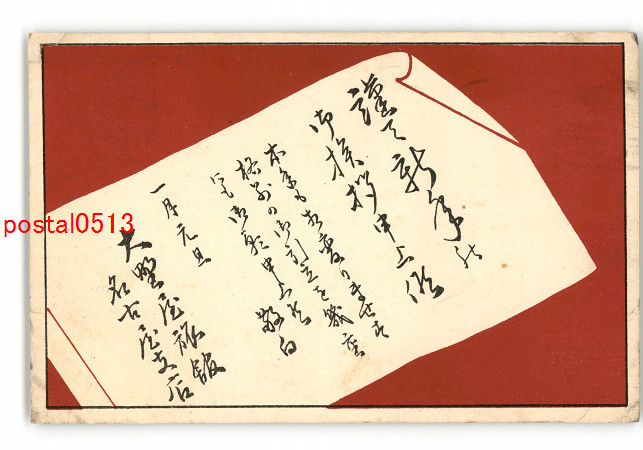 謹て新年の
御挨拶申上候
本年も相変りませず
格別の御引立を幾重
にも御願申上候 敬白
一月元旦
大野屋旅館
名古屋支店
postal0513